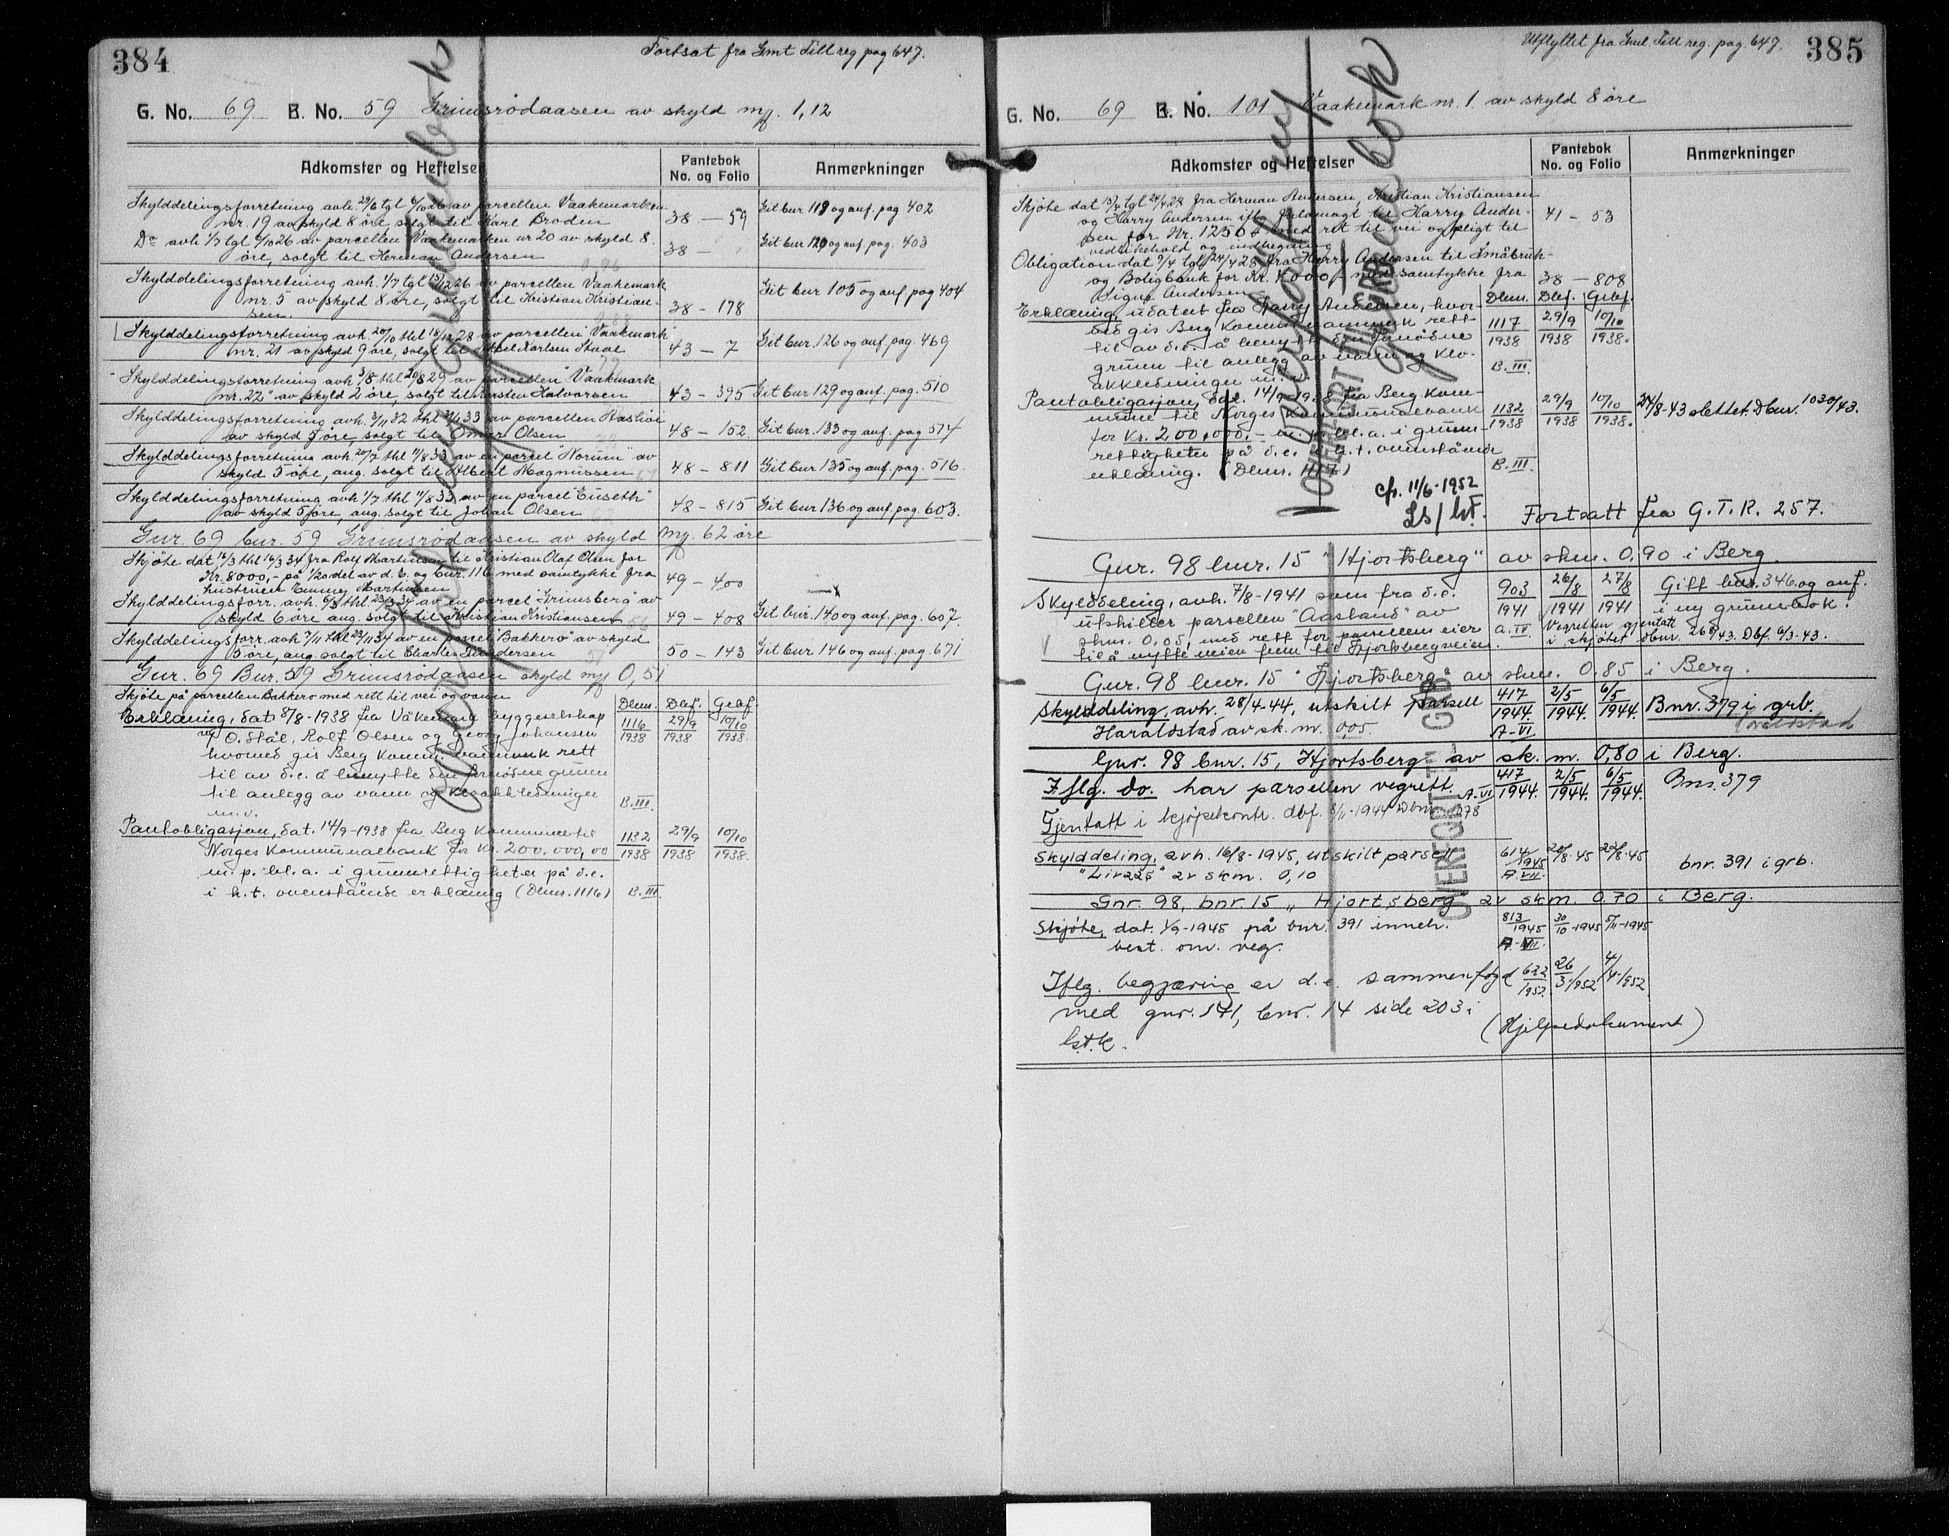 384
Fortsat fra Gml Till reg pag 647.
G. No. 69 B. No. 59 Grimsrødaasen av skyld mk. 1,12
Adkomster og Heftelser
Pantebok No. og Folio
Anmerkninger
Skylddelingsforretning avh. 29/6 tgl 4/10 26 av parcellen Vaakemarken
nr. 19 av skyld 8 øre, solgt til Karl Broden 38 — 59 Git bnr 119 og anf. pag 402
Do avh 1/7 tgl 4/10 26 av parcellen Vaakemarken nr 20 av skyld 8
øre, solgt til Herman Andersen 38 — Git bnr 120 og anf. pag. 403
Skylddelingsforretning avh. 1/7 tgl 15/12 26 av parcellen Vaakemark
nr. 5 av skyld 8 øre, solgt til Kristian Kristian-
sen. 38 — 178 Git bnr 105 og anf pag 404
Skylddelingsforretning avh. 20/10 thl 15/12 28 av parcellen "Vaakemark
nr. 21 av skyld 9 øre, solgt til Karlsen Staal 43 — 7 Git bnr. 126 og anf. pag. 469
"Skylddelingsforretning avh 3/8 thl 20/8 29 av parcellen "Vaakemark
nr. 22" av skyld 2 øre, solgt til Karsten Halvorsen 43 — 395 Git bnr 129 og anf. pag. 510
Skylddelingsforretning avh. 3/11 32 thl 33 av parcellen
av skyld 5 øre, solgt til Omar Olsen 48 — 152. Git bnr. 133 og anf. pag. 574
Skylddelingsforretning avh 20/7 thl 11/8 33 av en parcel "Norum" av
skyld 5 øre, ang. solgt til Albert Magnussen 48 — 811 Git bnr 135 og anf. pag. 516.
Skylddelingsforretning avh. 1/7 thl 11/8 33 av en parcel "Enseth"
av skyld 5 øre, ang. solgt til Johan Olsen 48 — 815 Git bnr 136 og anf. pag. 603.
Gnr. 69 bnr. 59 Grimsrødaasen av skyld my. 62 øre
Skjøte dat 14/3 thl 16/3 34 fra Rolf Martinsen til Kristian Olaf Olsen for
Kr. 8000,- på 1/20 del av d. e. og bnr. 116 med samtykke fra
hustruen Emmy Martinsen 49 — 400
Skylddelingsforr. avh. 6/3 thl. 23/3 34 av en parcel "Grimsberg" av
skyld 6 øre ang. solgt til Kristian Kristiansen 49 — 408 Git bnr. 140 og anf. pag. 607.
Skylddelingsforr. avh 7/11 thl 23/11 34 av en parcel "Bakkero" av skyld
5 øre, ang. solgt til Charles Andersen 50 — 143 Git bnr 146 og anf. pag. 671
Gnr. 69 Bnr. 59 Grimsrødaasen skyld my 0,51
Skjøte på parcellen Bakkero med rett til vei og vann
Dbnr. Dbf. Grbf.
Erklæring, dat. 8/8-1938 fra Våkemark byggeselskap 1116/1938 29/9 1938 10/10 1938.
v/ O. Stål, Rolf Olsen og Georg Johansen
hvorved gis Berg Komm. vannverk rett
til av d.e. å benytte den fornødne grunn
til anlegg av vann og kloakkledninger B. III.
m.v.
Pantobligasjon, dat. 14/9-1938 fra Berg Kommune til 1132/1938 29/9 1938 10/10 1938.
Norges Kommunalbank for kr. 200.000,00
m. p. bl. a. i grunnrettigheter på d.e.
i h. t. ovenstående erklæring (Dbnr. 1116) B. III.
Overført ny grunnbok
385
Utflyttet fra Gml. Till reg. pag. 647.
G. No. 69 B. No. 101 Vaakemark nr. 1. av skyld 8 øre
Adkomster og Heftelser
Pantebok No. og Folio
Anmerkninger
Skjøte dat 13/4 tgl 24/4 28 fra Herman Andersen, Kristian Kristiansen
og Harry Andersen iflg. fuldmagt til Harry Ander- 41 — 53
sen for Kr. 1250 med ret til vei og pligt til
vedlikehold og indhegning
Obligation dat 9/4 tgl 24/4 28 fra Harry Andersen til Småbruk-
og Boligbank for Kr. 4000 med samtykke fra 38 — 808
Signe Andersen
Dbnr. Dbf. Grbf.
Erklæring, udatert fra Harry Andersen, hvor- 1117/1938 29/9 1938 10/10 1938.
ved gis Berg Komm. vannverk rett
til av d.e. å benytte den fornødne
grunn til anlegg av vann og klo-
akkledninger m. v. B. III.
Pantobligasjon, dat. 14/9-1938 fra Berg Kom- 1132/1938 29/9 1938 10/10 1938. 24/8-43 slettet. Dbnr. 1030/43.
mune til Norges Kommunalbank
for kr. 200.000,- m. p. bl. a. i grunn-
rettigheter på d.e. i h.t. ovenstående
erklæring. (Dbnr. 1117) B. III.
cfr. 11/6-1952
Fortsatt fra G.T.R. 257.
Gnr. 98 bnr. 15 "Hjortsberg" av skm. 0,90 i Berg
Skylddeling, avh. 7/8-1941 som fra d.e. 903/1941 26/8 1941 27/8 1941 Gitt bnr. 346. og anf.
utskiller parsellen "Aasland" av i ny grunnbok.
skm. 0,05, med rett for parsellens eier A. IV. Vegretten gjentatt
til å nytte veien frem til Hjortsbergveien. i skjøtet dbnr. 268/43. Dbf. 6/3-43.
Gnr. 98 bnr. 15 "Hjortsberg" av skm. 0,85 i Berg.
Skylddeling, avh. 28/4-44, utskilt parsell 417/1944. 2/5 1944. 6/5 1944. Bnr. 379 i grb.
Haraldstad av sk. m. 005. A-VI.
Gnr. 98 bnr. 15, Hjortsberg av sk. m. 0,80 i Berg.
Iflg. do. har parsellen vegrett. A-VI 417/1944. 2/5 1944. 6/5 1944. Bnr. 379
Gjentatt i kjøpekontr. dbf. 8/11-1944 Dbnr 978
Skylddeling, avh. 16/8-1945, utskilt parsell 614/1945 A. VII. 20/8-45 22/8-45 bnr. 391 i grb.
av skm. 0,10
Gnr. 98, bnr. 15 „Hjortsberg av skm. 0,70 i Berg.
Skjøte, dat. 1/9-1945 på bnr. 391 inneh. 813/1945 30/10-1945 5/11-1945
best. om. veg. A-VII.
Iflg. begjæring er d.e. sammenføyd 622/1952. 26/3-1952 4/4-1952
med gnr. 141, bnr. 14 side 203 i
b.t.k. (Hjelpedokument)
Overført ny grunnbok
OVERFØRT TIL GRB.
OVERFØRT TIL GRB.